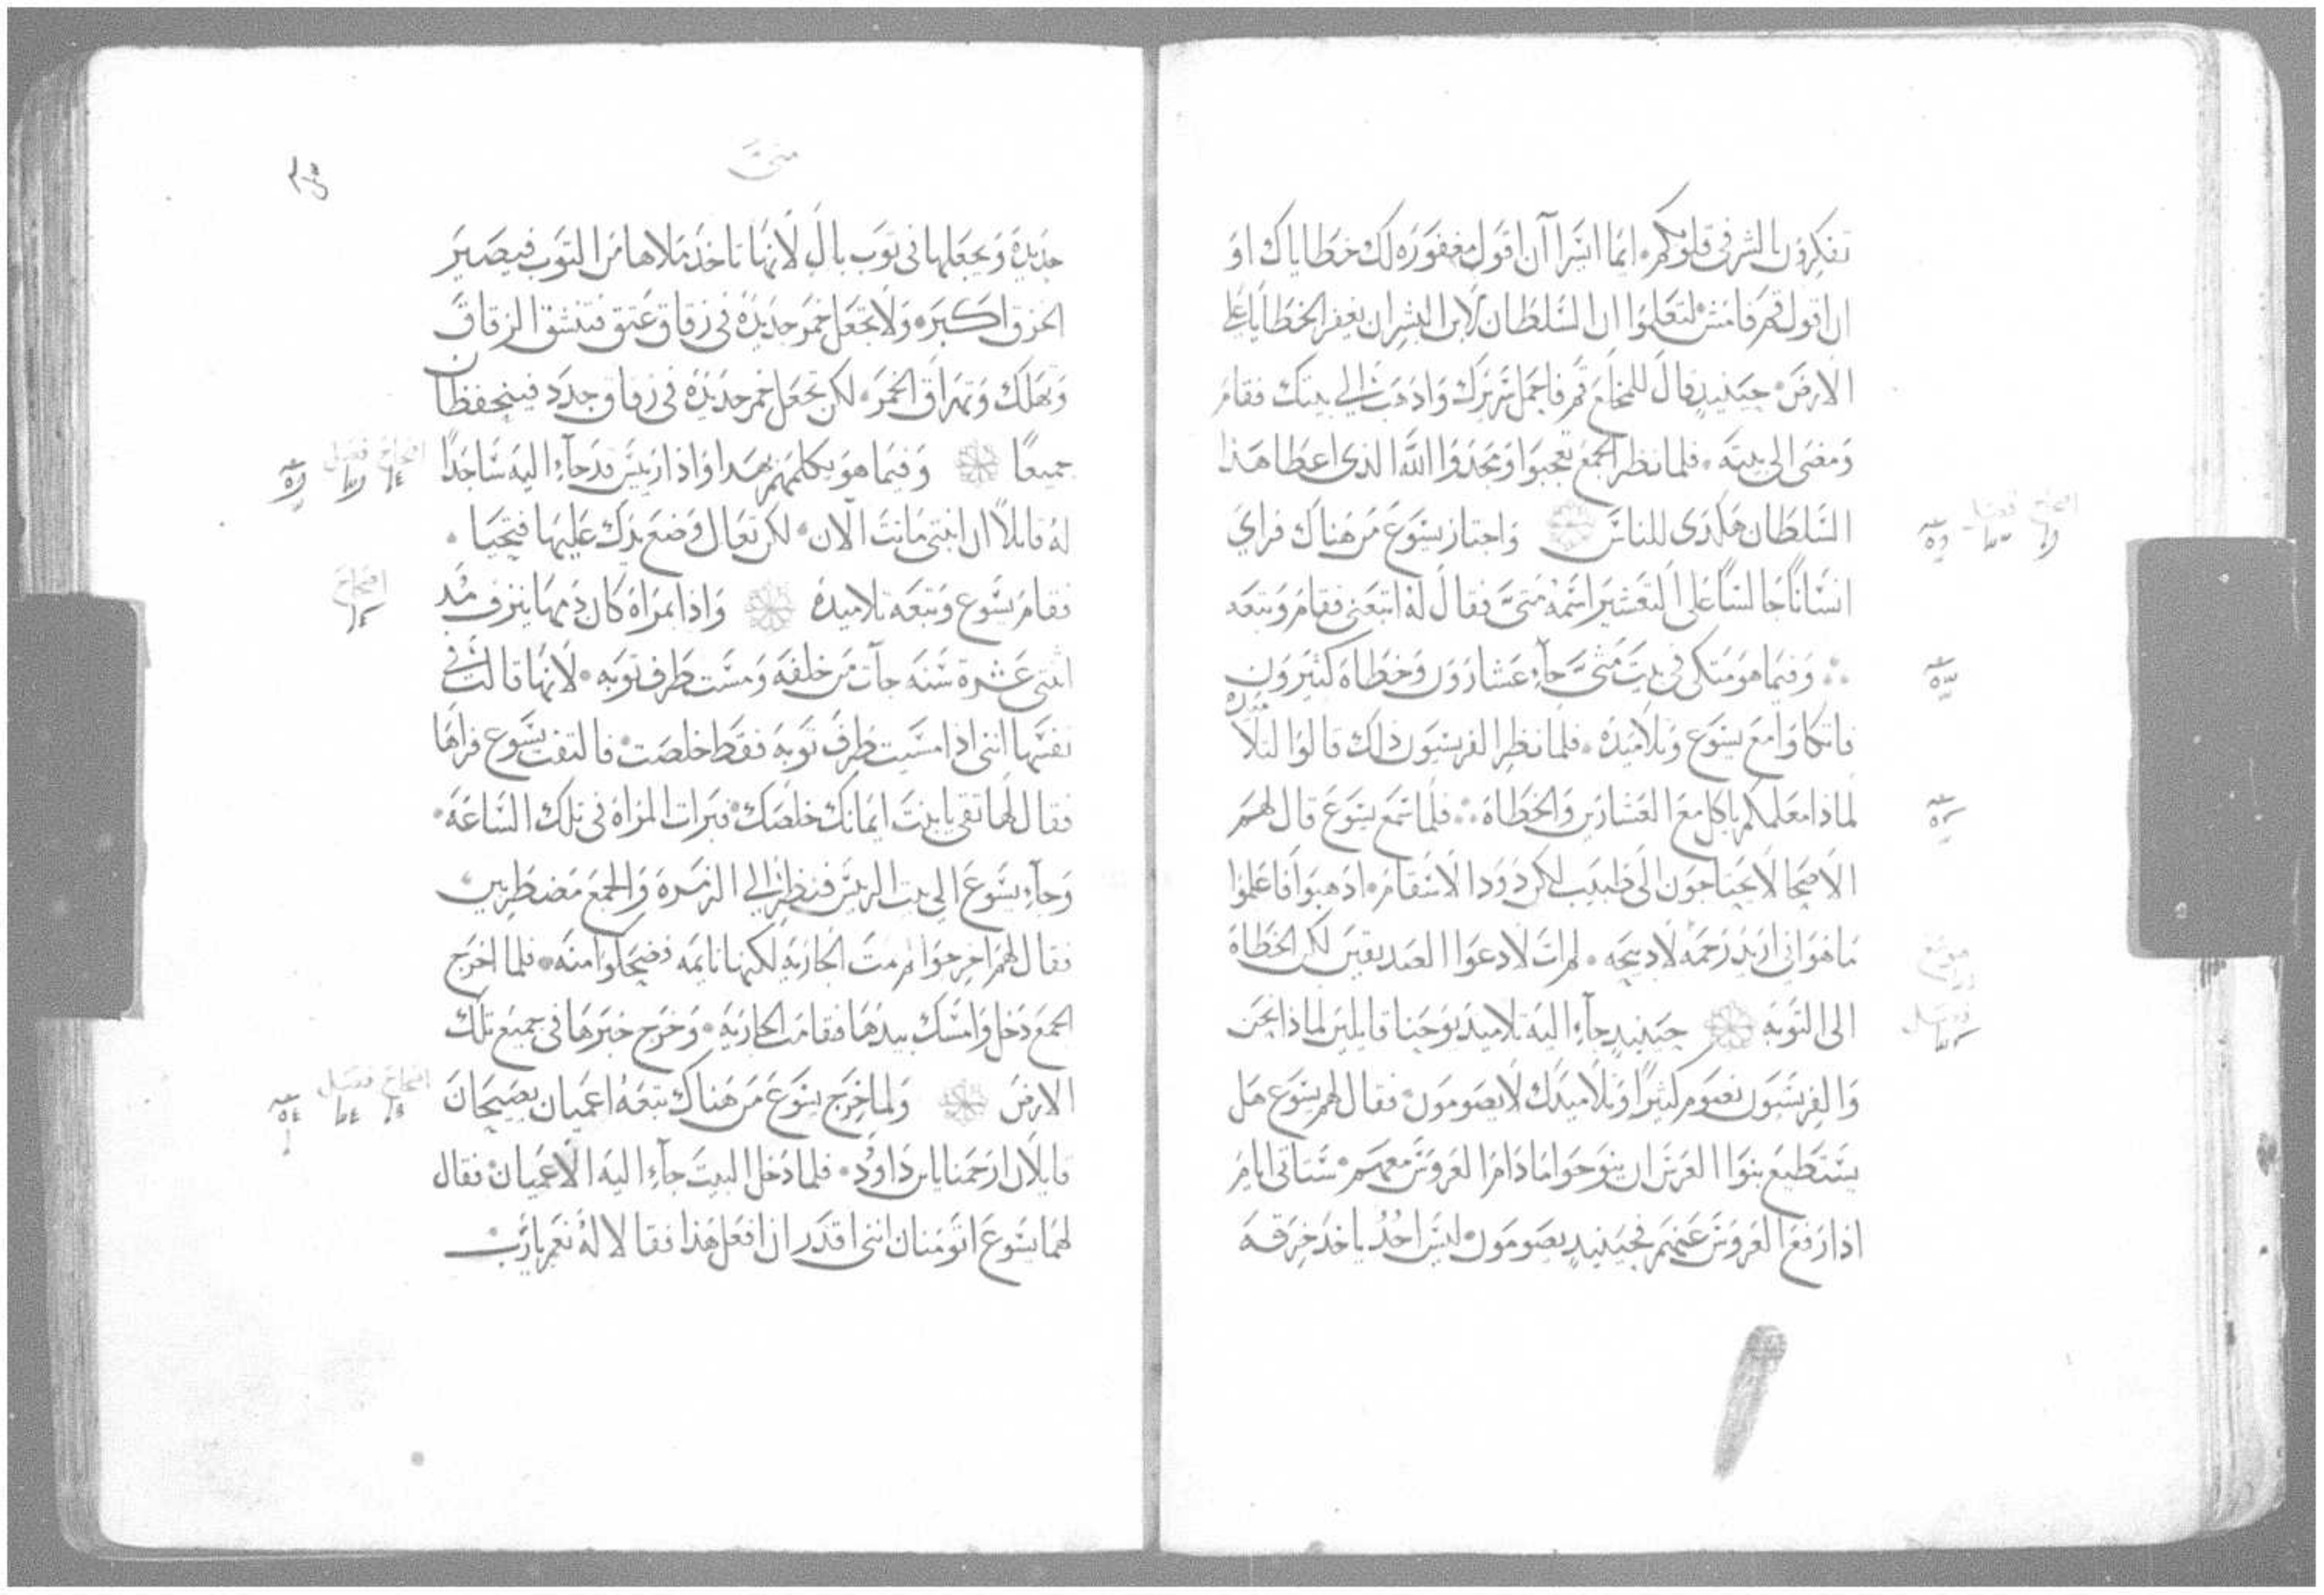 تفكرون بالشر في قلوبكم. ايما ايسرا آن اقول مغفوره لك خطاياك او
ان اقول قم فامش لتعلموا ان السلطان لابن البشر ان يغفر الخطايا على
الارض. حينيد قال للمخلع قم فاحمل سريرك واذهب الي بيتك فقام
ومضى الى بيته. فلما نظر الجمع تعجبوا ومجدوا الله الذي اعطا هذا
السلطان هكدى للناس واجتاز يسوع من هناك فراي
انسانا جالسا على التعشير اسمه متى فقال له اتبعني فقام وتبعه
وفيما هو متكي في بيت متى جآء عشارون وخطاه كثيرون
فاتكاوا مع يسوع وتلاميده. فلما نظر الفريسيون ذلك قالوا لتلاميده
لماذا معلمكم ياكل مع العشارين والخطاه. فلما سمع يسوع قال لهم
الاصحا لا يحتاجون الى طبيب لكن ذوو الاسقام. ادهبوا فاعلموا
ما هو اني اريد رحمه لا دبيحه. لم ات لادعوا الصديقين لكن الخطاه
الى التوبه حينيد جآء اليه تلاميد يوحنا قايلين لماذا نحن
والفريسيون نصوم كثيرا وتلاميدك لا يصومون فقال لهم يسوع هل
يستطيع بنوا العرس ان ينوحوا ما دام العروس معهم ستاتي ايام
اذا رفع العروس عنهم فحينيد يصومون ليس احد ياخد خرقه
متى
جديده ويجعلها في توب بال لانها تاخد ملاها من التوب فيصير
الخرق اكبر. ولا تجعل خمر جديده في زقاق عتق فتنشق الزقاق
وتهلك وتهراق الخمر. لكن تجعل خمر جديده في زقاق جدد فينحفظان
جميعا وفيما هو يكلمهم بهدا واذا رييس قد جآء اليه ساجدا
له قايلا ان ابنتي ماتت الان. لكن تعال وضع يدك عليها فتحيا.
فقام يسوع وتبعه تلاميده واذا بمراه كان دمها ينزف مند
اثنتي عشرة سنه جآت من خلفه ومست طرف توبه. لانها قالت في
نفسها انني اذا مسيت طرف توبه فقط خلصت فالتفت يسوع فراها
فقال لها تقي يا بنت ايمانك خلصك فبرات المراه في تلك الساعه.
وجآء يسوع الى بيت الرييس فنظر الي الزمره والجمع مضطربين
فقال لهم اخرجوا لم تمت الجاريه لكنها نايمه فضحكوا منه. فلما اخرج
الجمع دخل وامسك بيدها فقامت الجاريه. وخرج خبرها في جميع تلك
الارض ولما خرج يسوع من هناك تبعه اعميان يصيحان
قايلان ارحمنا يا بن داود. فلما دخل البيت جآء اليه الاعميان فقال
لهما يسوع اتومنان انني اقدر ان افعل هذا فقالا له نعم يارب